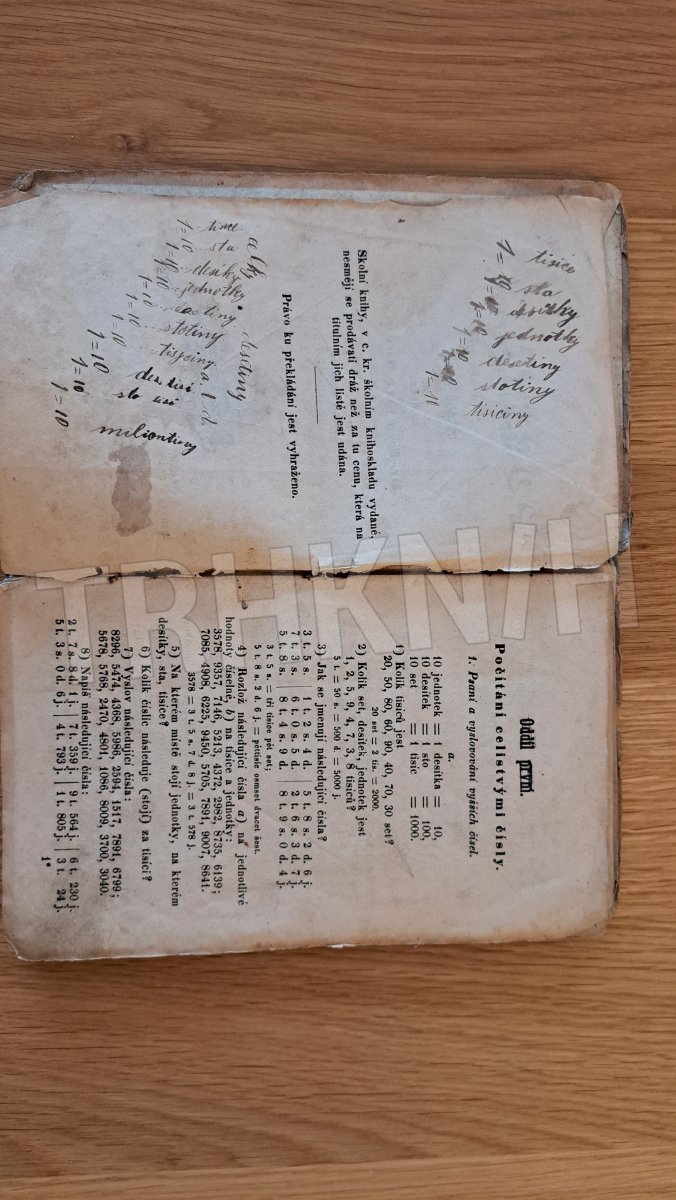 tisíce
1=10 sta
1=10 desítky
1=10 jednotky
1=10 desetiny
stotiny
1=10 tisíciny
Školní knihy, v c. kr. školním knihoskladu vydané,
nesmějí se prodávati dráž než za tu cenu, která na
titulním jich listě jest udána.
Právo ku překládání jest vyhraženo.
1=10 sta
1=10 jednotky
desetiny
1=10 stotiny
1=10 tisíciny a. t. d.
1=10
1=10
1=10 miliontiny
Oddíl první.
Počítání celistvými čísly.
1. Psaní a vyslovování vyšších čísel.
a.
10 jednotek = 1 desítka = 10,
10 desítek = 1 sto = 100,
10 set = 1 tisíc = 1000.
1) Kolik tisíců jest
20, 50, 80, 60, 90, 40, 70, 30 set?
20 set = 2 tis. = 2000.
2) Kolik set, desítek, jednotek jest
1, 2, 5, 9, 4, 7, 3, 8 tisíců?
5 t. = 50 s. = 500 d. = 5000 j.
3) Jak se jmenují následující čísla?
3 t. 5 s. | 1 t. 2 s. 4 d. | 5 t. 8 s. 2 d. 6 j.
7 t. 3 s. | 6 t. 0 s. 5 d. | 2 t. 6 s. 3 d. 7 j.
5 t. 8 s. | 8 t. 4 s. 9 d. | 8 t. 9 s. 0 d. 4 j.
3 t. 5 s. = tři tisíce pět set;
5 t. 8 s. 2 d. 6 j. = pěttisíc osmset dvacet šest.
4) Rozlož následující čísla a) na jednotlivé
hodnoty číselné, b) na tisíce a jednotky:
3578, 9357, 7146, 5213, 4372, 2982, 8735, 6139;
7085, 4908, 6225, 9450, 5705, 7891, 9007, 8641.
3578 = 3 t. 5 s. 7 d. 8 j. = 3 t. 578 j.
5) Na kterém místě stojí jednotky, na kterém
desítky, sta, tisíce?
6) Kolik číslic následuje (stojí) za tisíci?
7) Vyslov následující čísla:
8296, 5474, 4368, 5986, 2594, 1517, 7891, 6799;
5678, 5768, 2470, 4801, 1086, 8009, 3700, 3040.
8) Napiš následující čísla:
2 t. 7 s. 8 d. 1 j. | 7 t. 359 j. | 9 t. 564 j. | 6 t. 230 j.
5 t. 3 s. 0 d. 6 j. | 4 t. 793 j. | 1 t. 805 j. | 3 t. 24 j.
1*
TRHKNIH